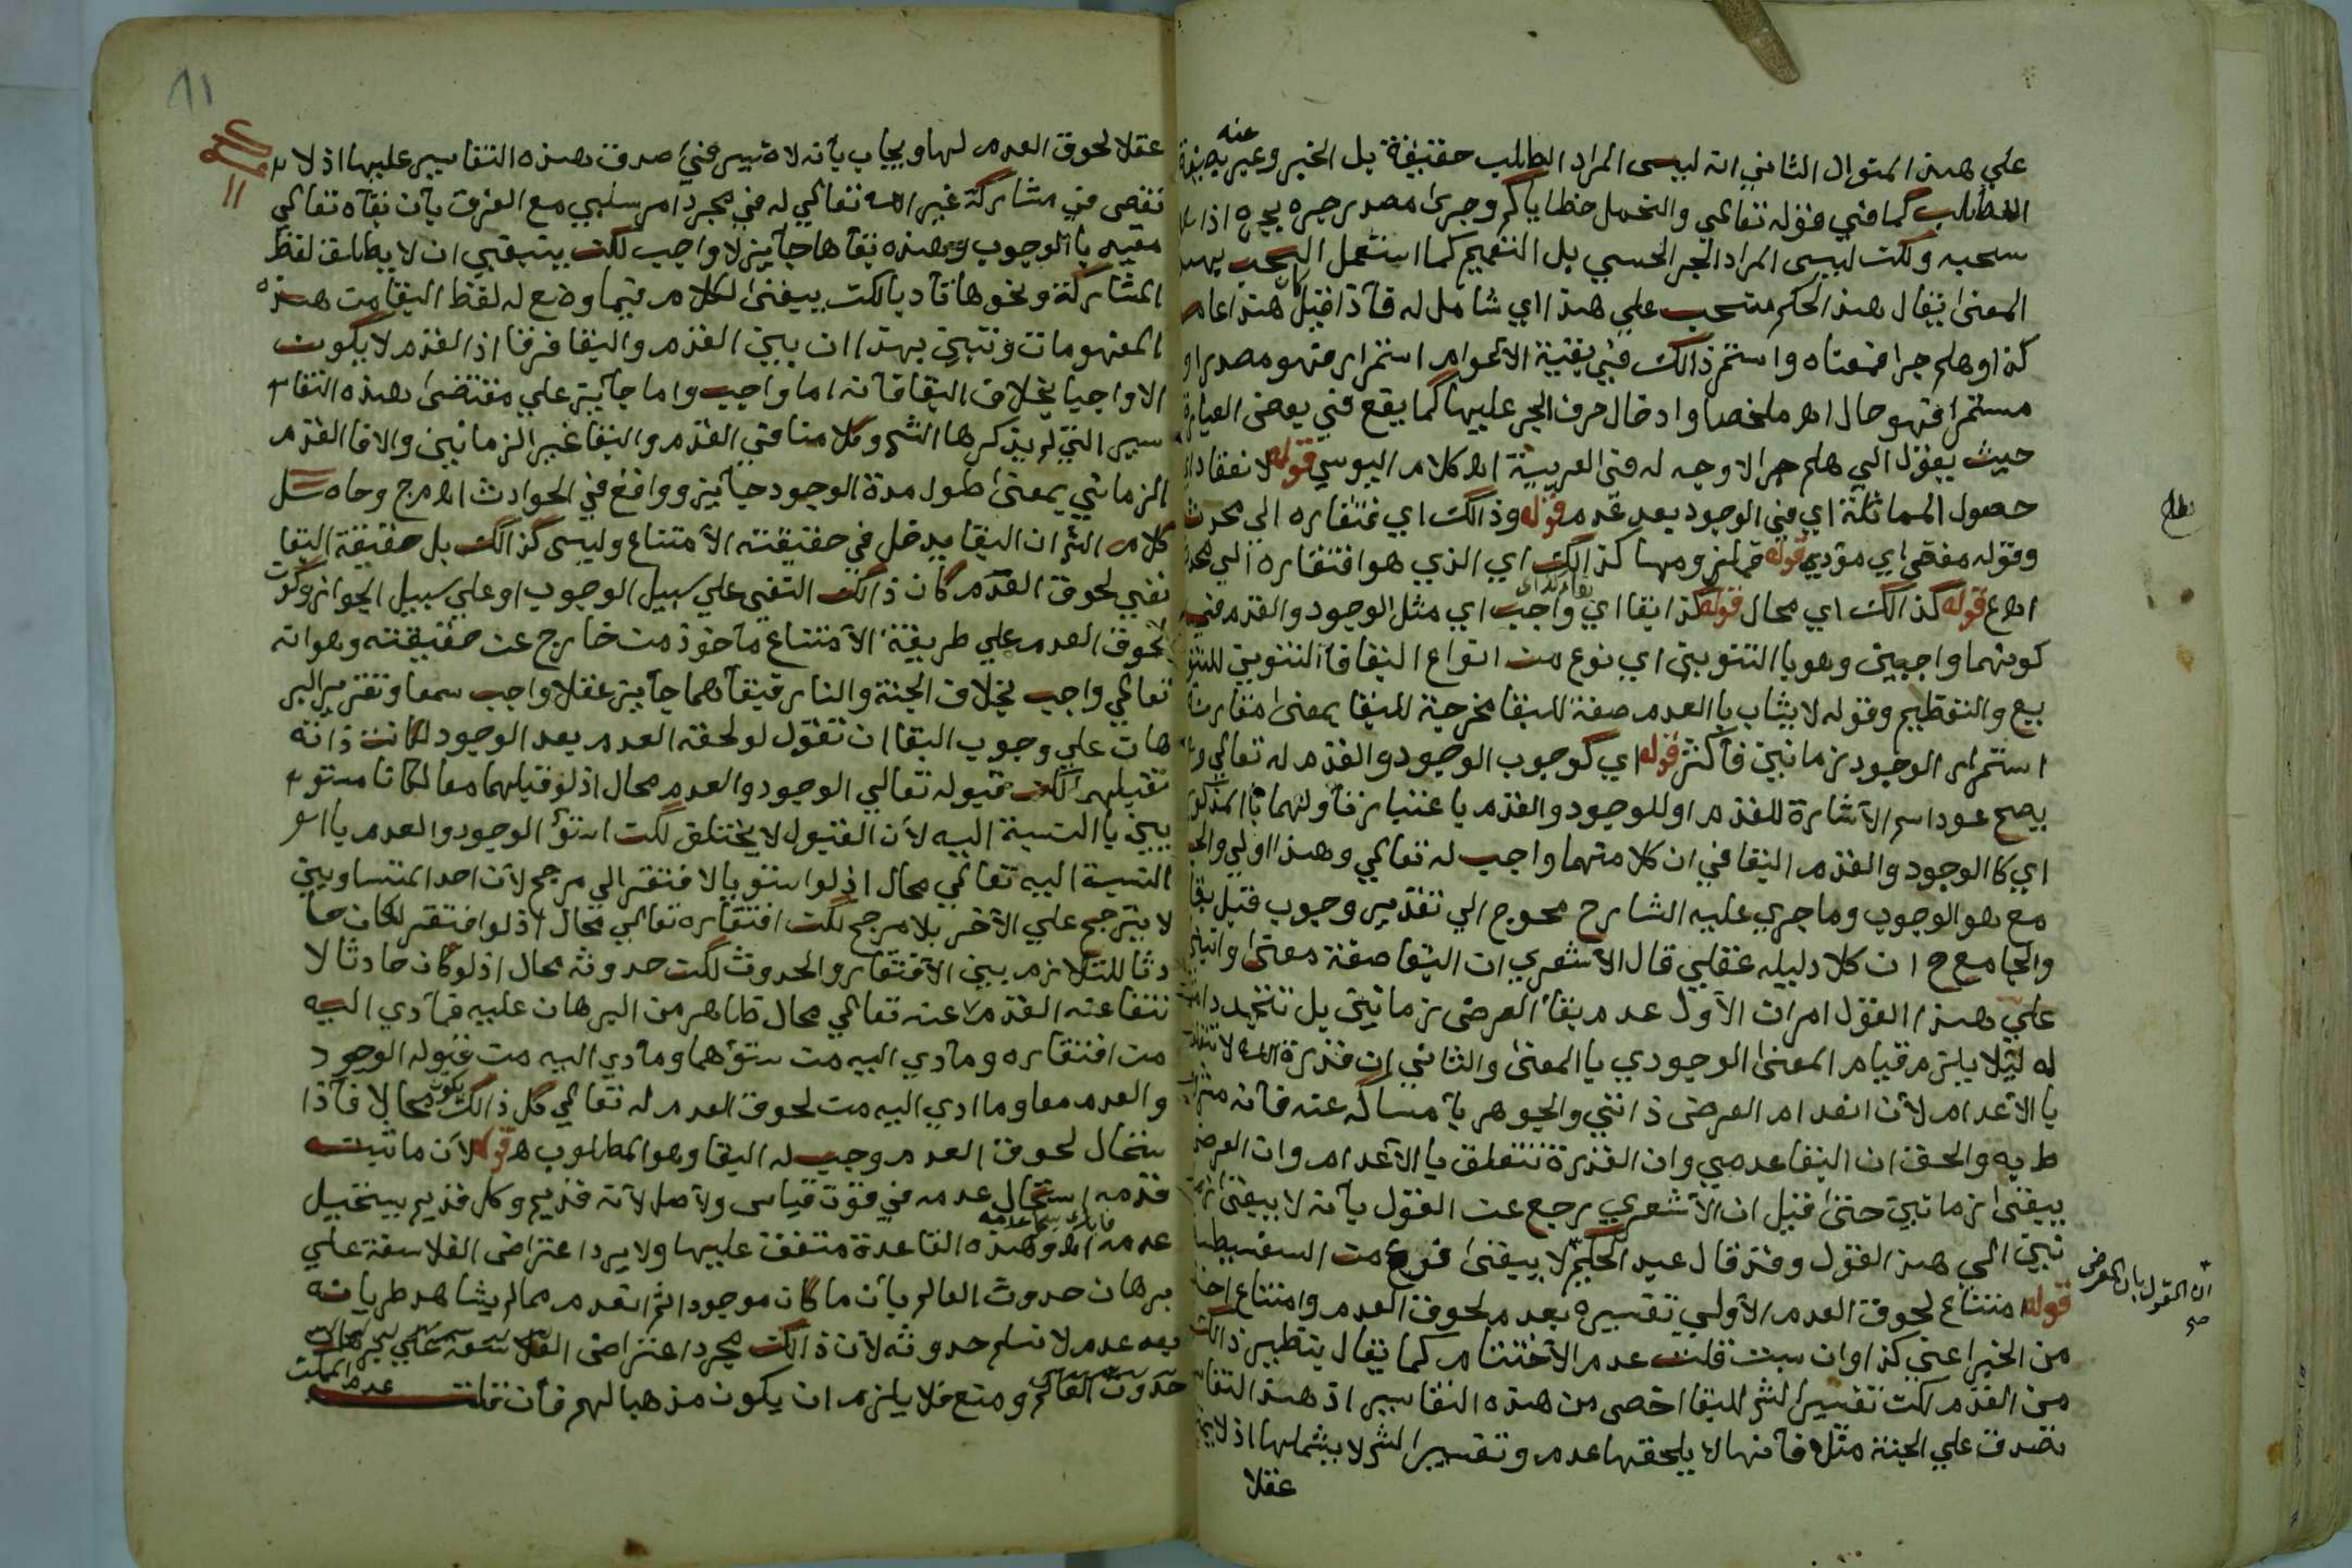 علي هذا المنوال الثاني انه ليس المراد الطلب حقيقة بل الخبر وعبر عنه بصيغة
الطلب كما في قوله تعالي ولنحمل خطاياكم وجرى مصدر جره يجره اذا
سحبه ولكن ليس المراد الجر الحسي بل التعميم كما استعمل السحب بهذا
المعنى يقال هذا الحكم منسحب علي هذا اي شامل له فاذا قيل كان هذا عام
كذا وهلم جرا فمعناه واستمر ذالك في بقية الاعوام استمرارا فهو مصدر او
مستمرا فهو حال اهـ ملخصا وادخال حرف الجر عليها كما يقع في بعض العبارة
حيث يقول الي هلم جرا لا وجه له في العربية اهـ كلام اليوسي قوله لانعقاد اي
حصول المماثلة اي في الوجود بعد عدم قوله وذالك اي فتقاره الي محدث
وقوله مفض اي مؤدي قوله فملزومها كذالك اي الذي هو افتقاره الي محدث
اهـ ع قوله كذالك اي محال قوله كذا بقا اي واجب اي مثل الوجود والقدم في
كونهما واجبين وهو باالتنوين اي نوع من انواع البقا فاالتنوين للتنو
يع والتعظيم وقوله لا يشاب باالعدم صفة للبقا مخرجة للبقا بمعنى مقارنة
استمرار الوجود زمانين فأكثر قوله اي كوجوب الوجود والقدم له تعالي و
يصح عود اسم الاشارة للقدم او للوجود والقدم باعتبار تأولهما باالمذكور
اي كا الوجود والقدم البقا في ان كلا منهما واجب له تعالي وهذا اولي والجا
مع هو الوجوب وما جري عليه الشارح محوج الي تقدير وجوب قبل بقا
والجامع ح ان كلا دليله عقلي قال الاشعري ان البقا صفة معنى وانبني
علي هذا القول امران الاول عدم بقا العرض زمانين بل تتجدد امثا
له ليلا يلزم قيام المعنى الوجودي باالمعنى والثاني ان قدرة الله لا تتعلق
باالاعدام لان انعدام العرض ذاتي والجوهر بامساكه عنه فانه
ط به والحق ان البقا عدمي وان القدرة تتعلق باالاعدام وان العرض
يبقى زمانين حتى قيل ان الاشعري رجع عن القول بانه لا يبقى زما
نين الي هذا القول وقد قال عبد الحكيم لا يبقى نوع من السفسطة
ان القول بان العرض صح
قوله امتناع لحوق العدم الاولي تفسيره بعدم لحوق العدم وامتناع اخذا
من الخبر اعني كذا وان سبت قلت عدم الاختتام كما يقال ينظير ذالك
من القدم لكن تفسير الش للبقا اخص من هذه التفاسير اذ هذا التفا
تصدق علي الجنة مثلا فانها لا يلحقها عدم وتفسير الش لا يشملها اذ لا
عقلا
11
عقلا لحوق العدم لها ويجاب بانه لا ضير في صدق هذه التفاسير عليها اذ لا
نقص في مشاركة غير الله تعالي له في مجرد امر سلبي مع الفرق بان بقاه تعالي
مقيد باالوجوب وهذه بقاها جايز لا واجب لكن ينبغي ان لا يطلق لفظ
المشاركة ونحوها تأديا لكن يبقى الكلام فيما وضع له لفظ البقا من هذه
المفهومات وتبين بهذا ان بين القدم والبقا فرقا اذ القدم لا يكون
الا واجبا بخلاف البقا فانه اما واجب واما جايز علي مقتضى هذه التفا
سير التي لم يذكرها الش وكلامنا في القدم والبقا غير الزمانيين والا فا القدم
الزماني بمعنى طول مدة الوجود جايز وواقع في الحوادث اهـ م ج وحاصل
كلام الش ان البقا يدخل في حقيقته الامتناع وليس كذالك بل حقيقة البقا
نفي لحوق العدم كان ذالك النفي علي سبيل الوجوب او علي سبيل الجواز وكون
لحوق العدم علي طريقة الامتناع مأخوذ من خارج عن حقيقته وهو انه
تعالي واجب بخلاف الجنة والنار فبقأهما جايز عقلا واجب سمعا وتقرير البر
هان علي وجوب البقا ان تقول لو لحقه العدم بعد الوجود لكانت ذاته
تقبلهما لكن قبوله تعالي الوجود والعدم محال اذ لو قبلهما معا لكانا مستو
يين باالنسبة اليه لان القبول لا يختلف لكن استوأ الوجود والعدم با
النسبة اليه تعالي محال اذ لو استويا لافتقر الي مرجح لان احد المتساويين
لا يترجح علي الاخر بلا مرجح لكن افتقاره تعالي محال اذ لو افتقر لكان حا
دثا للتلازم بين الافتقار والحدوث لكن حدوثه محال اذ لو كان حادثا لا
نتفا عنه القدم عنه تعالي محال ظاهر من البرهان عليه فمادي اليه
من افتقاره ومادي اليه من ستوأهما ومادي اليه من قبوله الوجود
والعدم معا وما ادي اليه من لحوق العدم له تعالي كل ذالك يكون محالا فاذا
ستحال لحوق العدم وجب له البقا وهو المطلوب هـ قوله لان ما ثبت
قدمه استحال عدمه في قوت قياس والاصل لانه قديم وكل قديم يستحيل
عدمه اهـ وهذه القاعدة متفق عليها ولا يرد اعتراض الفلاسفة علي
برهان حدوث العالم بان ما كان موجودا ثم انعدم مما لم يشاهد طريانه
بعد عدم لا نسلم حدوثه لان ذالك مجرد اعتراض الفلاسفة علي برهان
حدوث العالم ومنع فلا يلزم ان يكون مذهبا لهم فان قلت عدم الممكن